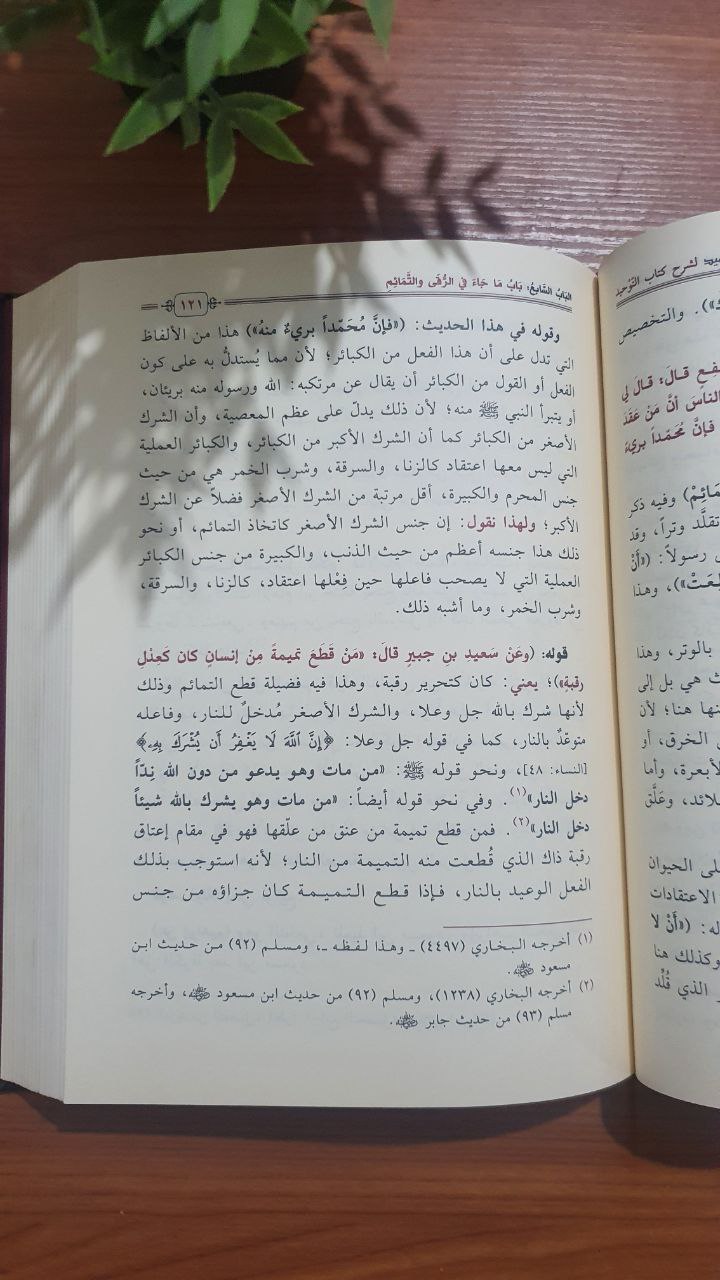 البَابُ السَّابعُ: بَابُ مَا جَاءَ في الرُّقَى والتَّمَائِمِ
١٢١
وقوله في هذا الحديث: («فإنَّ مُحَمَّداً بريءٌ منهُ») هذا من الألفاظ
التي تدل على أن هذا الفعل من الكبائر؛ لأن مما يُستدلُّ به على كون
الفعل أو القول من الكبائر أن يقال عن مرتكبه: الله ورسوله منه بريئان،
أو يتبرأ النبي ﷺ منه؛ لأن ذلك يدلّ على عظم المعصية، وأن الشرك
الأصغر من الكبائر كما أن الشرك الأكبر من الكبائر، والكبائر العملية
التي ليس معها اعتقاد كالزنا، والسرقة، وشرب الخمر هي من حيث
جنس المحرم والكبيرة، أقل مرتبة من الشرك الأصغر فضلاً عن الشرك
الأكبر؛ ولهذا نقول: إن جنس الشرك الأصغر كاتخاذ التمائم، أو نحو
ذلك هذا جنسه أعظم من حيث الذنب، والكبيرة من جنس الكبائر
العملية التي لا يصحب فاعلها حين فِعْلها اعتقاد، كالزنا، والسرقة،
وشرب الخمر، وما أشبه ذلك.
قوله: (وعَنْ سَعيدِ بنِ جبيرٍ قالَ: «مَنْ قَطَعَ تميمةً مِنْ إنسانٍ كان كَعِدْلِ
رقبةٍ»)؛ يعني: كان كتحرير رقبة، وهذا فيه فضيلة قطع التمائم وذلك
لأنها شرك بالله جل وعلا، والشرك الأصغر مُدخلٌ للنار، وفاعله
متوعّدٌ بالنار، كما في قوله جل وعلا: ﴿إِنَّ ٱللَّهَ لَا يَغْفِرُ أَن يُشْرَكَ بِهِۦ﴾
[النساء: ٤٨]، ونحو قوله ﷺ: «من مات وهو يدعو من دون الله نِدّاً
دخل النار»(١). وفي نحو قوله أيضاً: «من مات وهو يشرك بالله شيئاً
دخل النار»(٢). فمن قطع تميمة من عنق من علّقها فهو في مقام إعتاق
رقبة ذاك الذي قُطعت منه التميمة من النار؛ لأنه استوجب بذلك
الفعل الوعيد بالنار، فإذا قطع التميمة كان جزاؤه من جنس
(١) أخرجه البخاري (٤٤٩٧) ـ وهذا لفظه ـ، ومسلم (٩٢) من حديث ابن
مسعود رضي الله عنه.
(٢) أخرجه البخاري (١٢٣٨)، ومسلم (٩٢) من حديث ابن مسعود رضي الله عنه، وأخرجه
مسلم (٩٣) من حديث جابر رضي الله عنه.
لشرح كتاب التَّوْحيد
والتخصيص
قالَ: قالَ لي
الناسَ أنَّ مَنْ عَقَدَ
فإنَّ مُحَمّداً بريءٌ
وفيه ذكر
تقلَّد وتراً، وقد
رسولاً: («أَنْ
، وهذا
بالوتر، وهذا
هي بل إلى
هنا؛ لأن
الخرق، أو
الأبعرة، وأما
وعَلَّق
الحيوان
الاعتقادات
(«أَنْ لا
وكذلك هنا
الذي قُلِّد